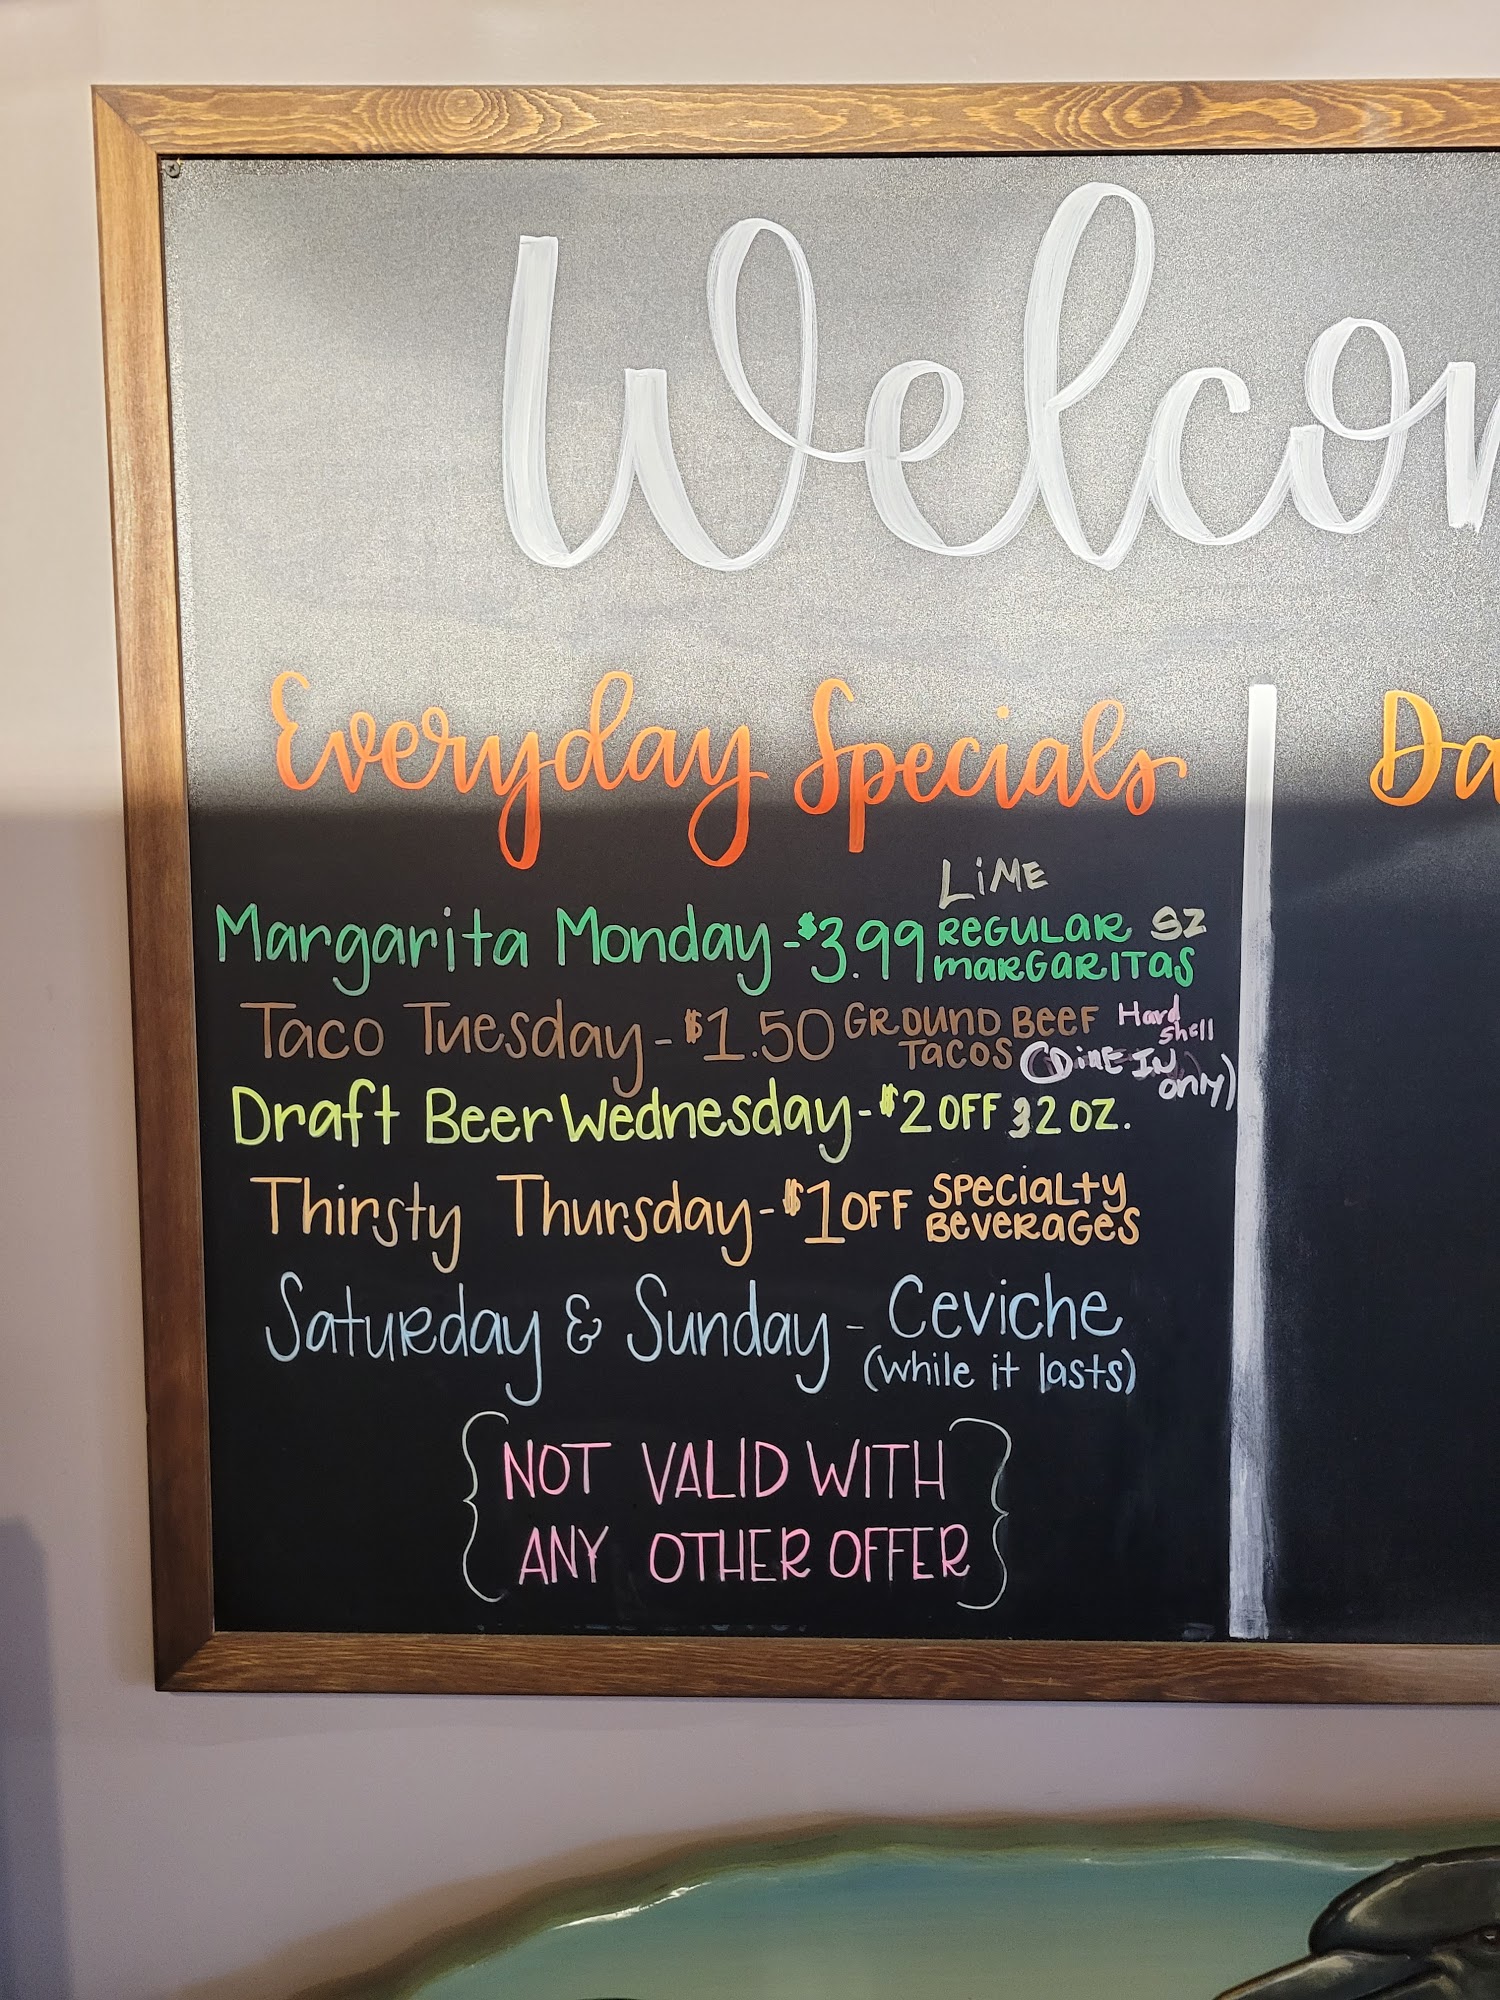 Welcom
Everyday Specials
Da
LiME
Margarita Monday - $3.99 REGULAR SZ
MARGARITAS
Taco Tuesday - $1.50 GROUND BEEF Hard
TACOS shell
(DiNE IN
only)
Draft Beer Wednesday - $2 OFF 32 OZ.
Thirsty Thursday - $1 OFF SPECIALTY
BEVERAGES
Saturday & Sunday - Ceviche
(while it lasts)
{NOT VALID WITH
ANY OTHER OFFER}